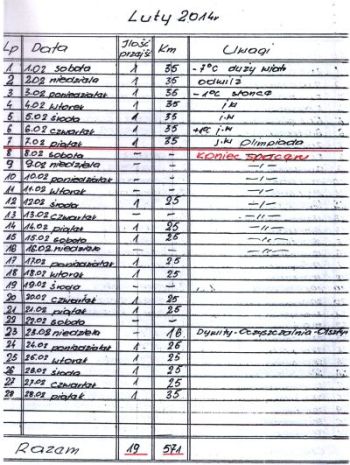 Luty 2014r
Lp Data Ilość przejść Km Uwagi
1 1.02 sobota 1 35 -7°C duży wiatr
2 2.02 niedziela 1 35 odwilż
3 3.02 poniedziałek 1 35 -1°C słońce
4 4.02 wtorek 1 35 j.w
5 5.02 środa 1 35 j.w
6 6.02 czwartek 1 35 +1°C j.w
7 7.02 piątek 1 35 j.w Olimpiada
8 8.02 sobota - - Koniec spaceru
9 9.02 niedziela - - -||-
10 10.02 poniedziałek - - -||-
11 11.02 wtorek - - -||-
12 12.02 środa 1 25
13 13.02 czwartek - - -||-
14 14.02 piątek 1 25
15 15.02 sobota 1 25 -||-
16 16.02 niedziela - - -||-
17 17.02 poniedziałek 1 25
18 18.02 wtorek 1 25
19 19.02 środa - -
20 20.02 czwartek 1 25
21 21.02 piątek 1 25
22 22.02 sobota - -
23 23.02 niedziela - 16 Dywity-Oczyszczalnia-Olsztyn
24 24.02 poniedziałek 1 25
25 25.02 wtorek 1 25
26 26.02 środa 1 25
27 27.02 czwartek 1 25
28 28.02 piątek 1 35
Razem 19 571